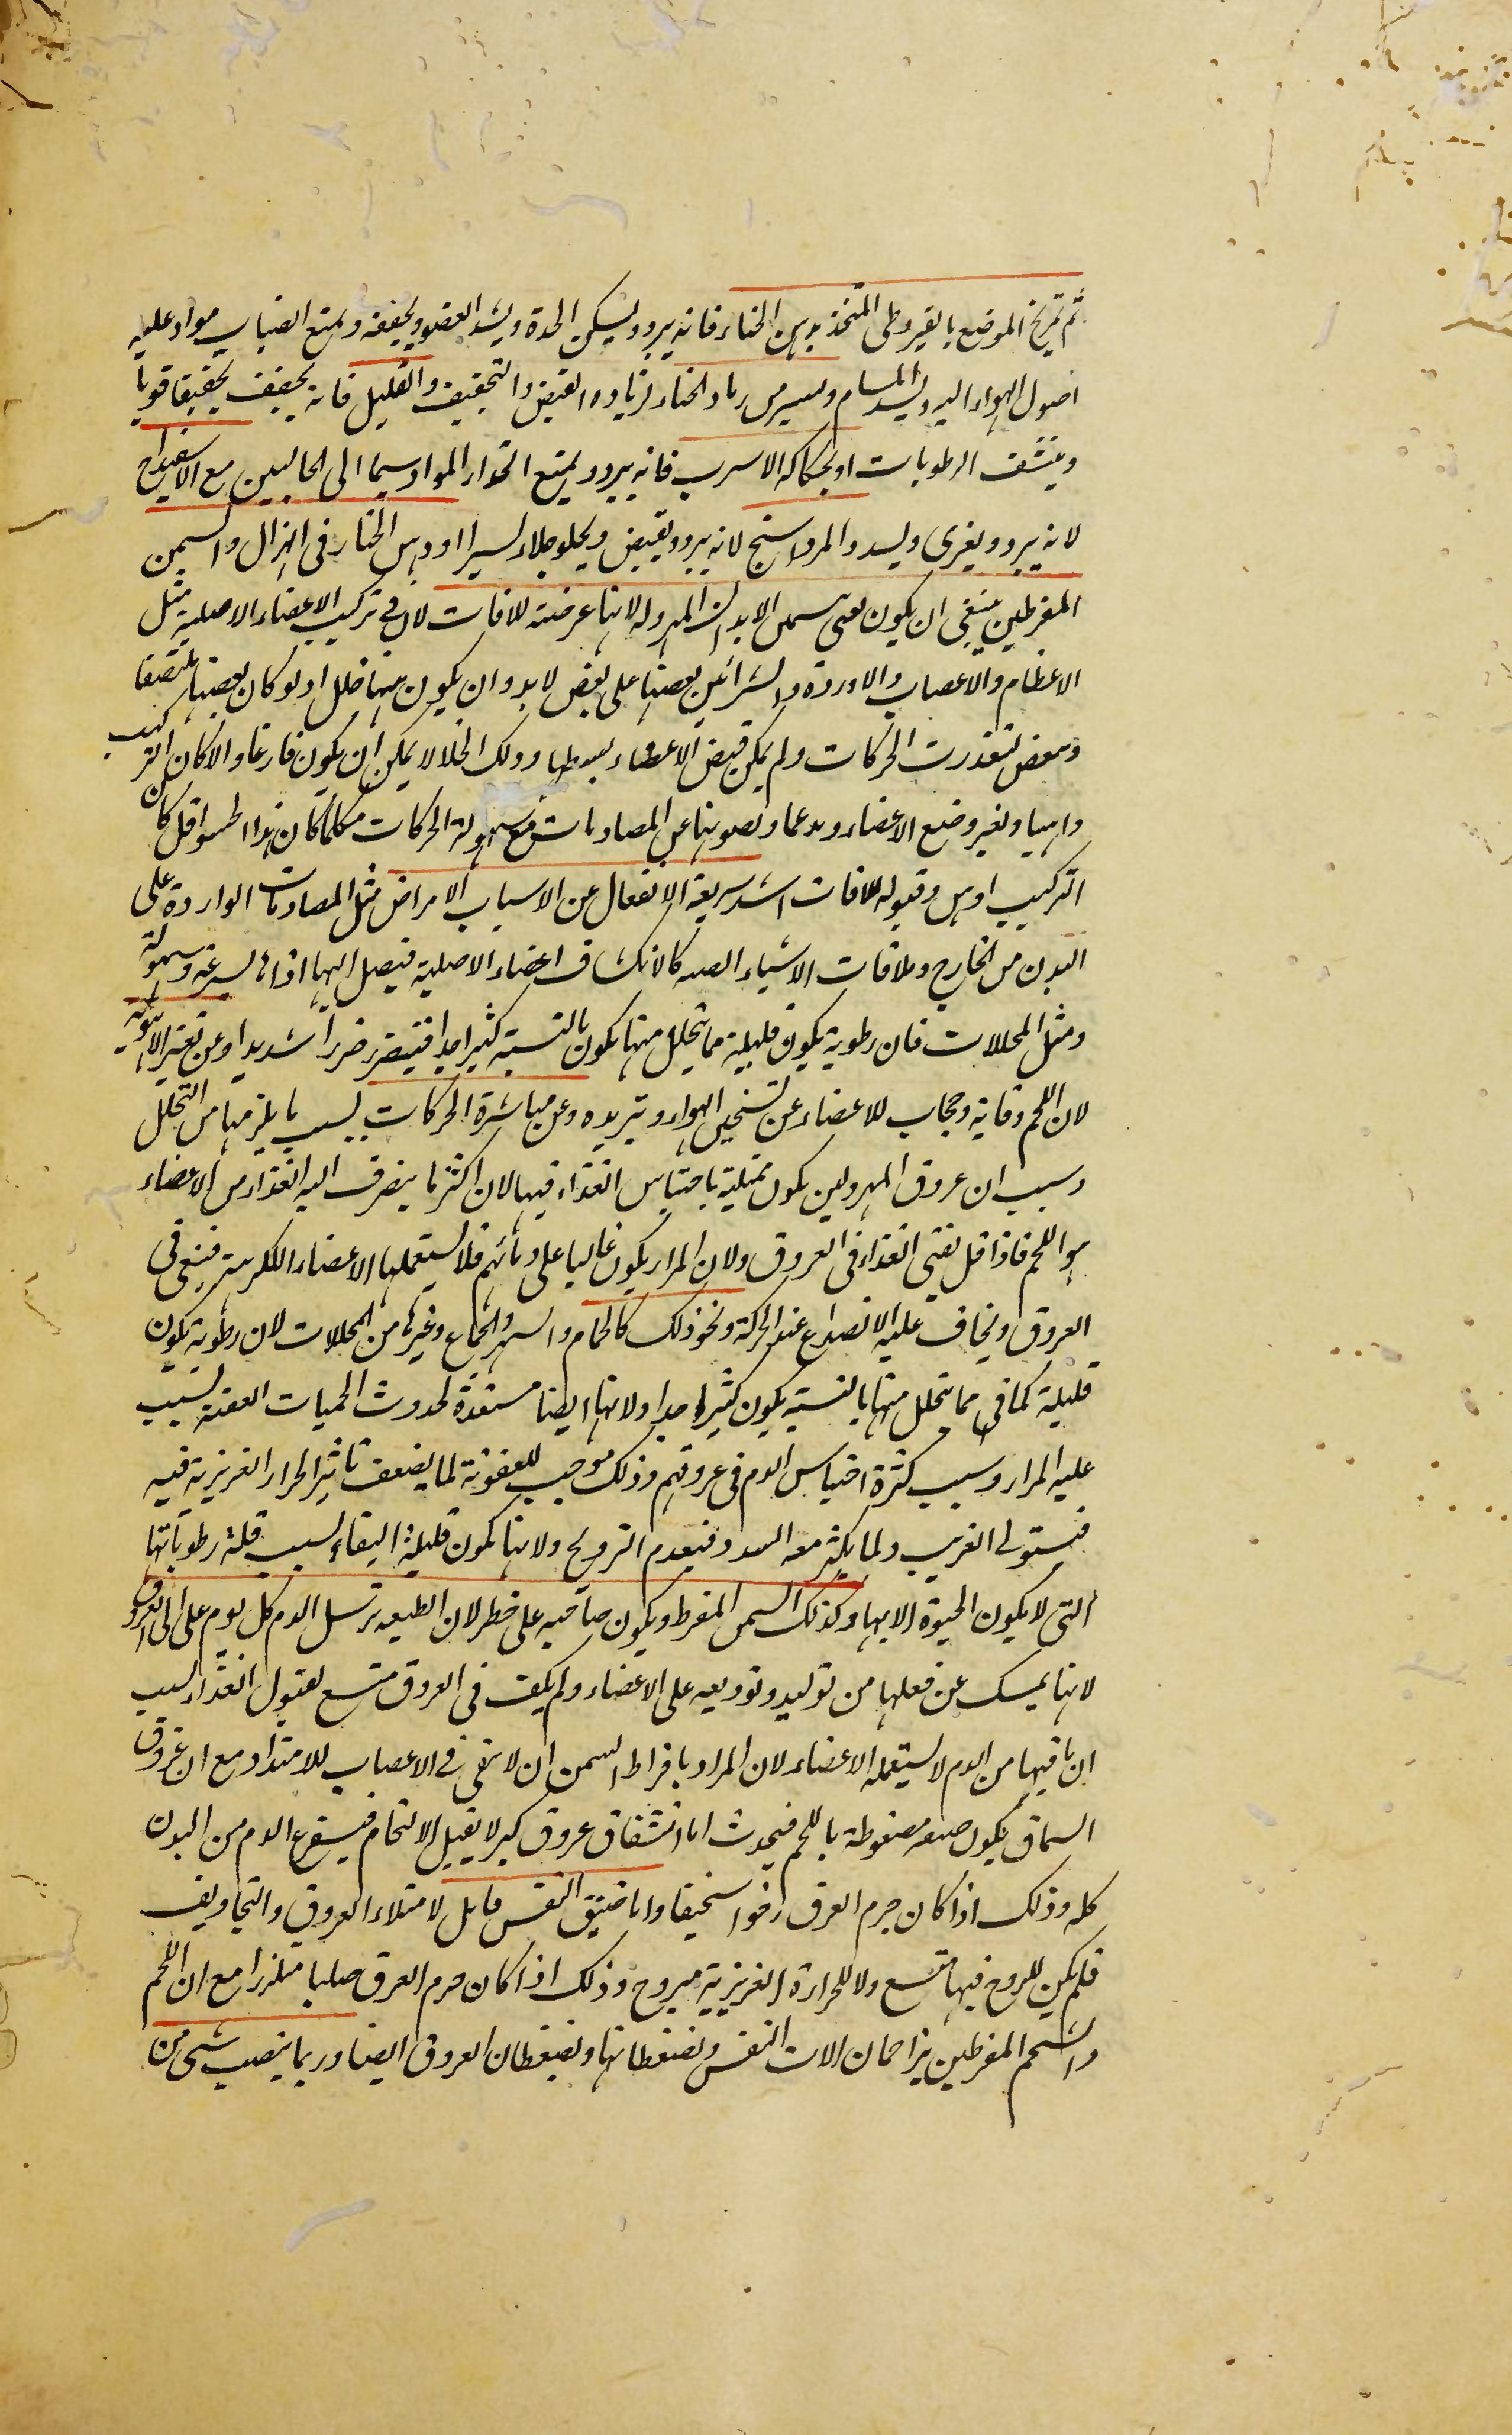 ثم تمریخ الموضع بالقیروطی المتخذ بدهن الحناء فانه یبرد ویسکن الحدة ویشد العضو ویجففه ویمنع انصباب مواد علیه
اصول الهواء الیه ویسد المسام ویسیر من رماد الحناء لزیادة القبض والتجفیف والقلیل فانه یجفف تجفیفا قویا
وینشف الرطوبات او بحکاکه الاسرب فانه یبرد ویمنع انحدار المواد سیما الی الحالبین مع الاسفیداج
لانه یبرد ویغری ویسد والمرداسنج لانه یبرد ویقبض ویجلو جلاء یسیرا او دهن الحناء فی الهزال والسمن
المفرطین ینبغی ان یکون یعنی سمن الابدان المهزوله لانها عرضة للافات لان فی ترکیب الاعضاء الاصلیة مثل
الاعظام والاعصاب والاوردة والشرائین بعضها علی بعض لابد وان یکون بینها خلل اذ لو کان بعضها ملتصقا
ببعض لتعذرت الحرکات ولم یمکن قبض الاعضاء وبسطها وذلک الخلا لا یمکن ان یکون فارغا والا کان الترکیب
واهیا وتغیر وضع الاعضاء ویدعمها وتصونها عن المصادمات مع سهولة الحرکات فکلما کان هذا الحشو اقل کان
الترکیب اوهن وقبوله للافات اشد سریعة الانفعال عن الاسباب الامراض مثل المصادمات الواردة علی
البدن من الخارج وملاقات الاشیاء الصلبه کالانکشاف اعضاء الاصلیة فیصل الیها اذاها بسرعة وسهولة
ومثل المحللات فان رطوبة یکون قلیلة مما یتحلل منها یکون بالنسبة کثیرا جدا فیتضرر ضررا شدیدا وعن تغیر الاهویة
لان اللحم وقایة وحجاب للاعضاء عن تسخین الهواء وتبریده وعن مباشرة الحرکات بسبب ما یلزمها من التحلل
وبسبب ان عروق المهزولین یکون ممتلیة باحتباس الغذاء فیها لان اکثر ما ینصرف الیه الغذاء من الاعضاء
هو اللحم فاذا قل بقی الغذاء فی العروق ولان المرار یکون غالبا علی دمائهم فلا یستعملها الاعضاء الکریهیته فیبقی فی
العروق ویخاف علیه الانصداع عند الحرکة ونحو ذلک کالحمام والسهر والجماع وغیرها من المحللات لان رطوبة یکون
قلیلة کما فی مما یتحلل منها بالنسبة یکون کثیرا جدا ولانها ایضا مستعدة لحدوث الحمیات العفنة بسبب
علیه المرار وبسبب کثرة احتباس الدم فی عروقهم وذلک موجب للعفونة لما یضعف تاثیر الحرار الغریزیة فیه
فیستولی الغریب ولما یکثر معه السدد فیعدم الترویح ولانها یکون قلیلة البقاء بسبب قلة رطوباتها
التی لا یکون الحیوة الا بها وکذلک السمن المفرط ویکون صاحبه علی خطر لان الطبیعه ترسل الدم کل یوم علی الی العروق
لانها یمسک عن فعلها من تولید وتوزیعه علی الاعضاء ولم یکن فی العروق متسع لقبول الغذاء بسبب
ان ما فیها من الدم لا یستعمله الاعضاء لان المراد بافراط السمن ان لا تبقی فی الاعصاب للامتداد مع ان عروق
السمان یکون ضیقه مضغوطة باللحم فیحدث اما انشقاق عروق کبیر لا یقبل الالتحام فیستفرغ الدم من البدن
کله وذلک اذا کان جرم العرق رخوا سخیفا واما ضیق النفس قاتل لامتلاء العروق والتجاویف
فلم یکن للروح فیها متسع ولا للحرارة الغریزیة مبروح وذلک اذا کان جرم العرق صلبا متلززا مع ان اللحم
والشحم المفرطین یزاحمان الات النفس ویضغطانها ویضغطان العروق ایضا وربما ینصب شی من